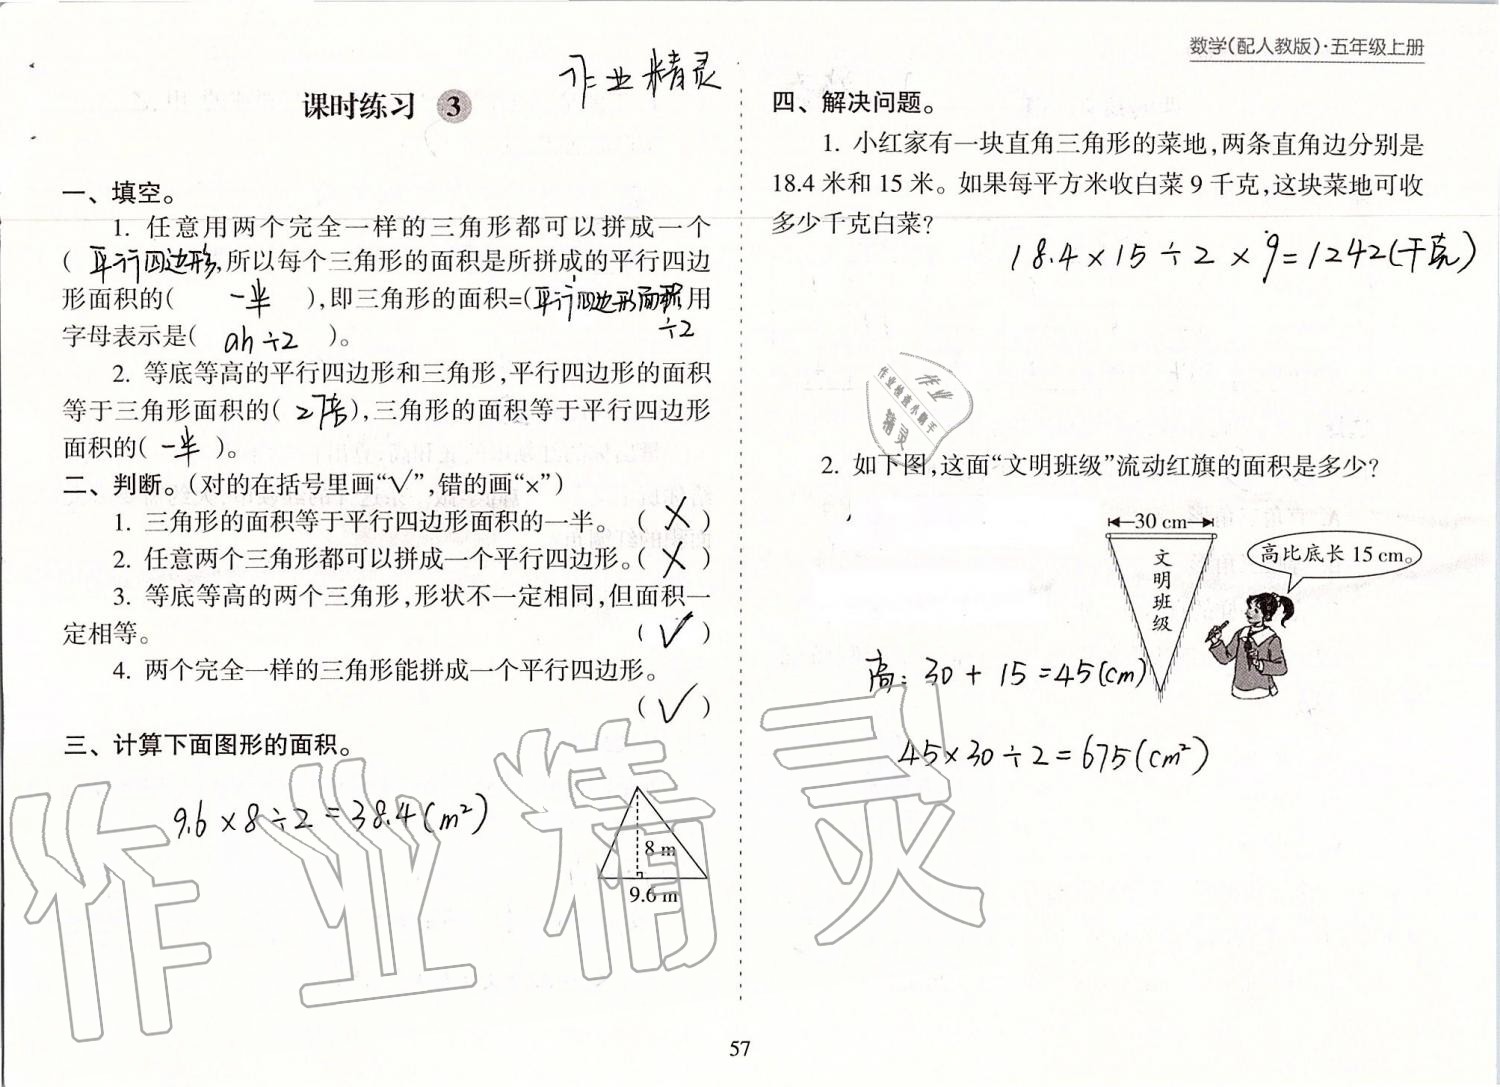 数学(配人教版)·五年级上册
作业精灵
课时练习 3
一、填空。
1. 任意用两个完全一样的三角形都可以拼成一个
( 平行四边形,所以每个三角形的面积是所拼成的平行四边
形面积的( 一半 ),即三角形的面积=(平行四边形面积用
÷2
字母表示是( ah÷2 )。
2. 等底等高的平行四边形和三角形,平行四边形的面积
等于三角形面积的( 2倍),三角形的面积等于平行四边形
面积的( 一半 )。
二、判断。(对的在括号里画“√”,错的画“×”)
1. 三角形的面积等于平行四边形面积的一半。 ( × )
2. 任意两个三角形都可以拼成一个平行四边形。( × )
3. 等底等高的两个三角形,形状不一定相同,但面积一
定相等。 ( √ )
4. 两个完全一样的三角形能拼成一个平行四边形。
( √ )
三、计算下面图形的面积。
9.6×8÷2=38.4(m²)
8 m
9.6 m
四、解决问题。
1. 小红家有一块直角三角形的菜地,两条直角边分别是
18.4 米和 15 米。如果每平方米收白菜 9 千克,这块菜地可收
多少千克白菜?
18.4×15÷2×9=1242(千克)
作业
作业检查小助手
精灵
2. 如下图,这面“文明班级”流动红旗的面积是多少?
30 cm
文明班级
高比底长 15 cm。
高:30+15=45(cm)
45×30÷2=675(cm²)
作业精灵
57